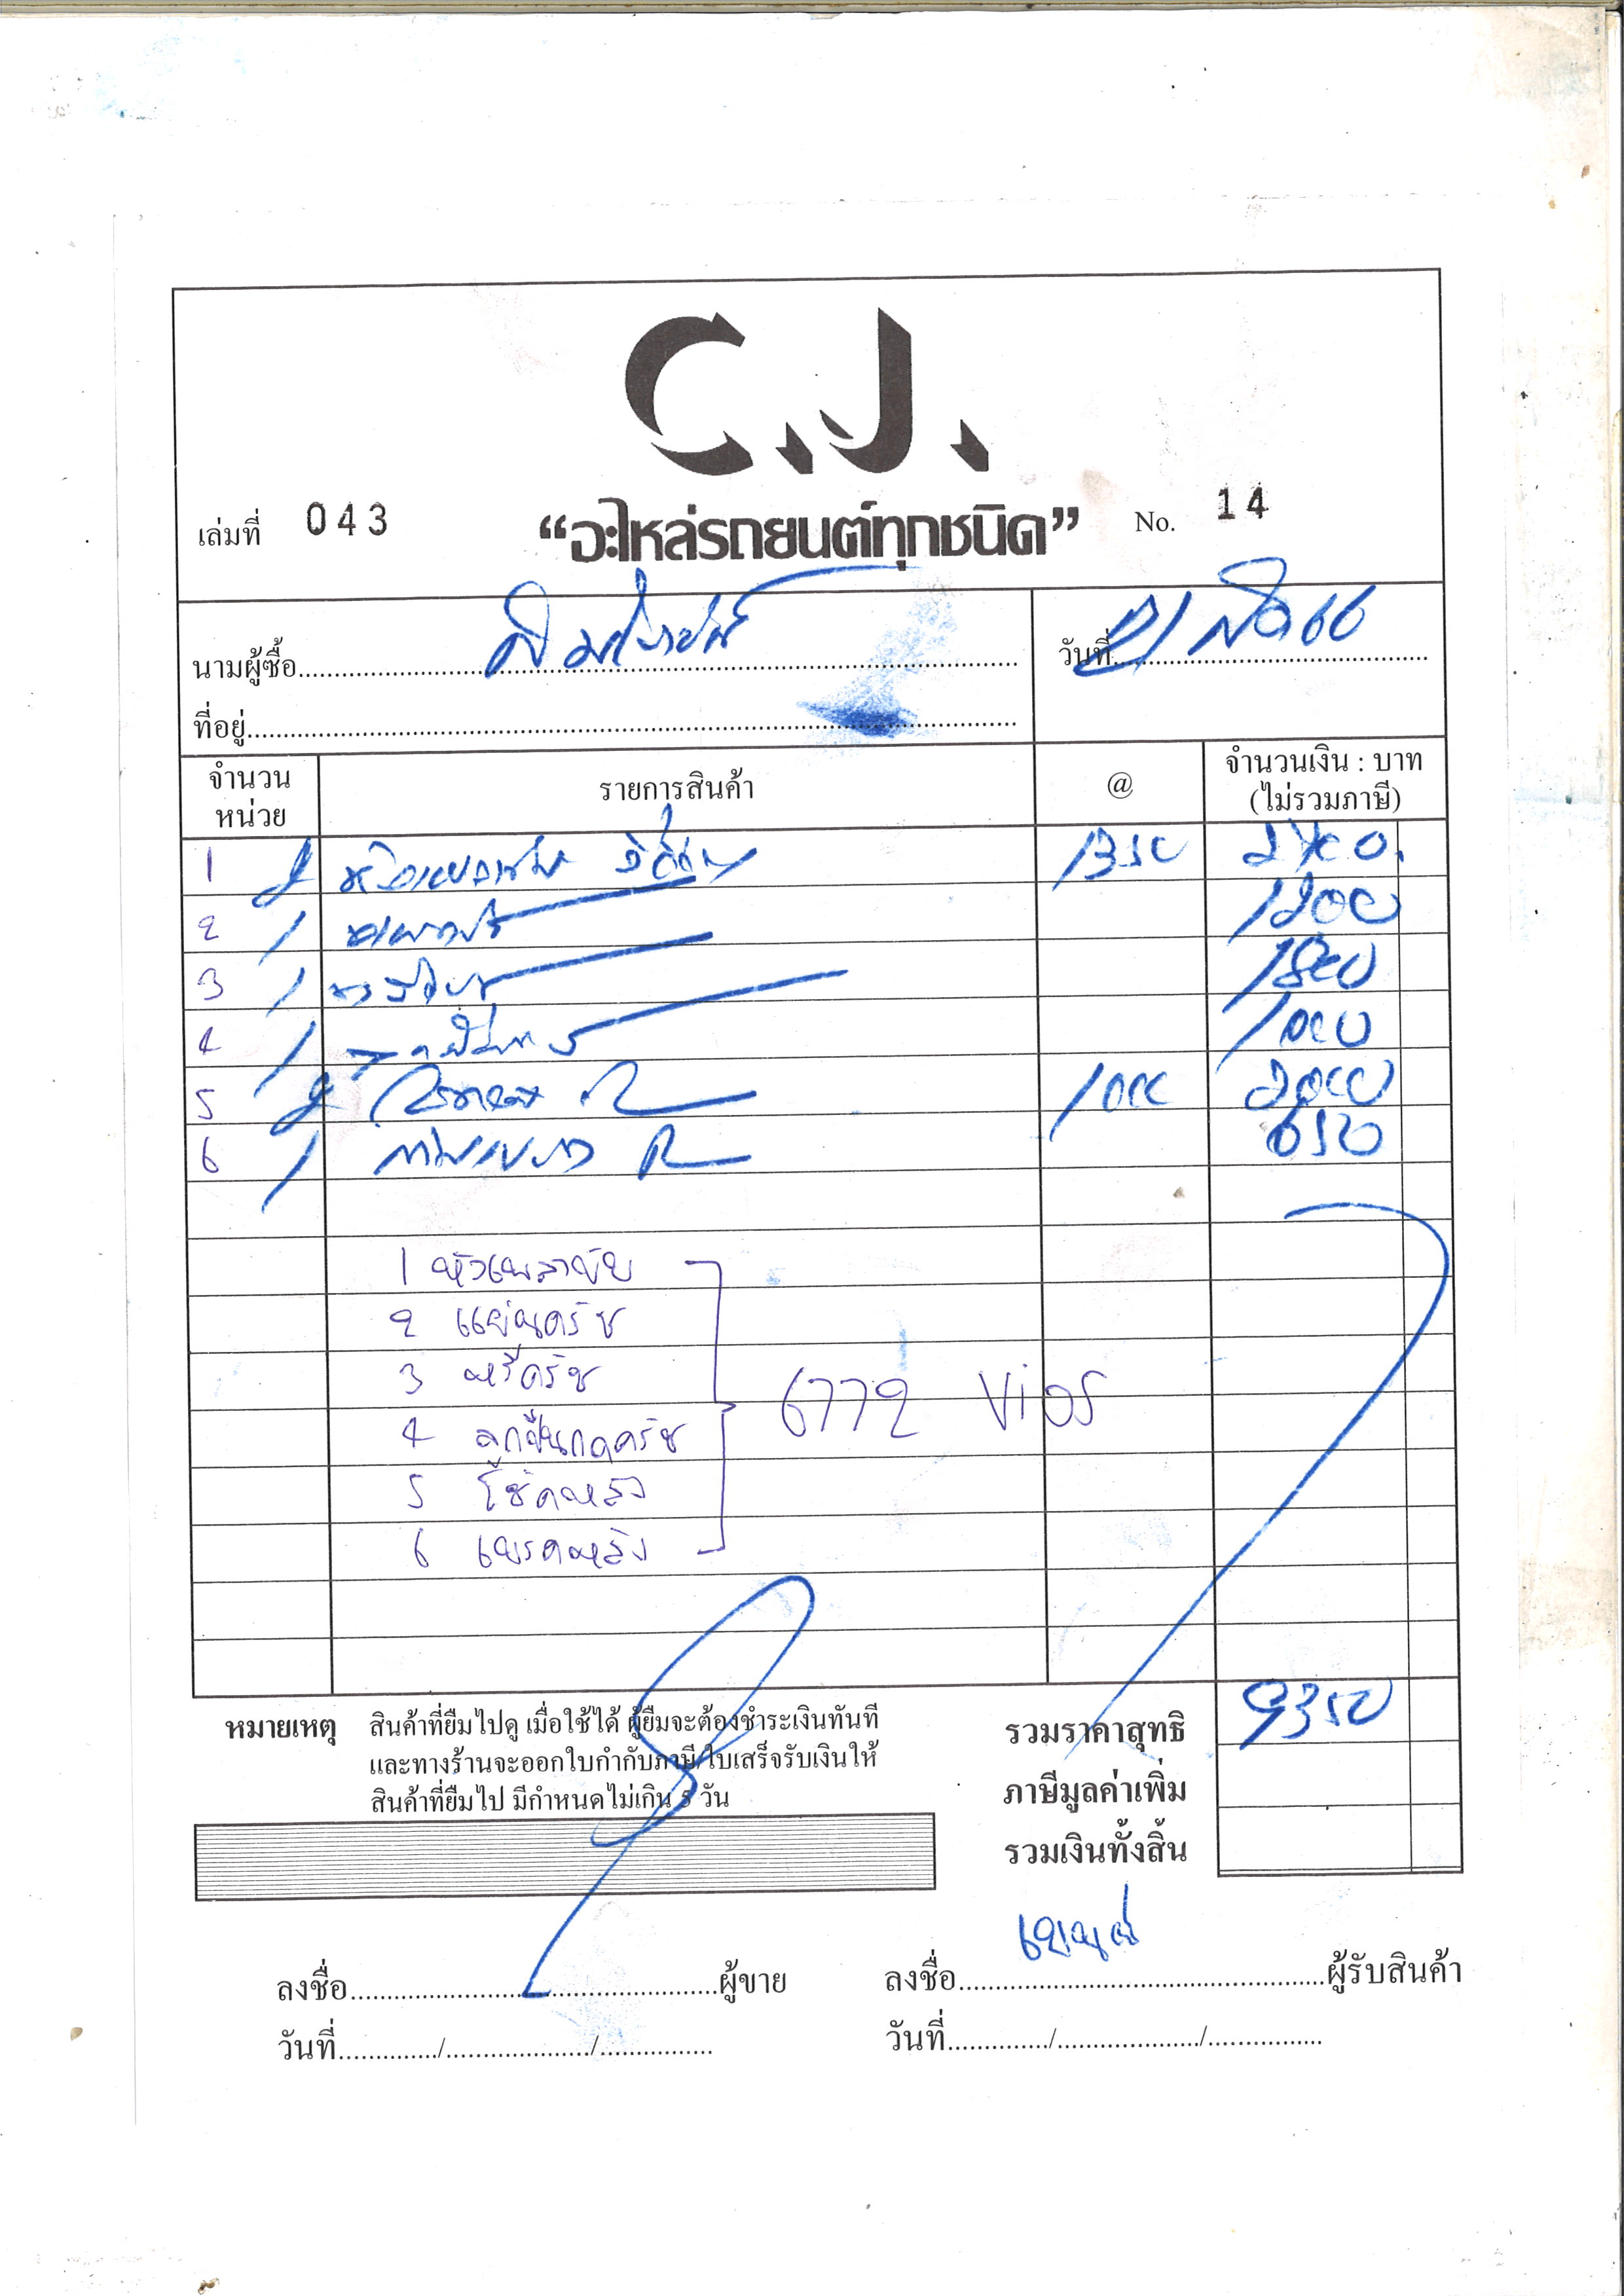 C.J.
เล่มที่ 043 “อะไหล่รถยนต์ทุกชนิด” No. 14
นามผู้ซื้อ
วันที่ 21
ที่อยู่
จำนวน หน่วย รายการสินค้า @ จำนวนเงิน : บาท (ไม่รวมภาษี)
1 2 หัวเพลาขับ 1350 2700.
2 1 1200
3 1 1800
4 1 1000
5 2 R 1000 2000
6 1 ก้ามเบรค R 650
1 หัวเพลาขับ
2 แผ่นครัช
3 หวีครัช
4 ลูกปืนกดครัช
5 โช๊คหลัง
6 เบรคหลัง
6772 Vios
หมายเหตุ สินค้าที่ยืมไปดู เมื่อใช้ได้ ผู้ยืมจะต้องชำระเงินทันที
และทางร้านจะออกใบกำกับภาษี/ใบเสร็จรับเงินให้
สินค้าที่ยืมไป มีกำหนดไม่เกิน 5 วัน
รวมราคาสุทธิ 9350
ภาษีมูลค่าเพิ่ม
รวมเงินทั้งสิ้น
ลงชื่อ ผู้ขาย ลงชื่อ ผู้รับสินค้า
วันที่ / / วันที่ / /